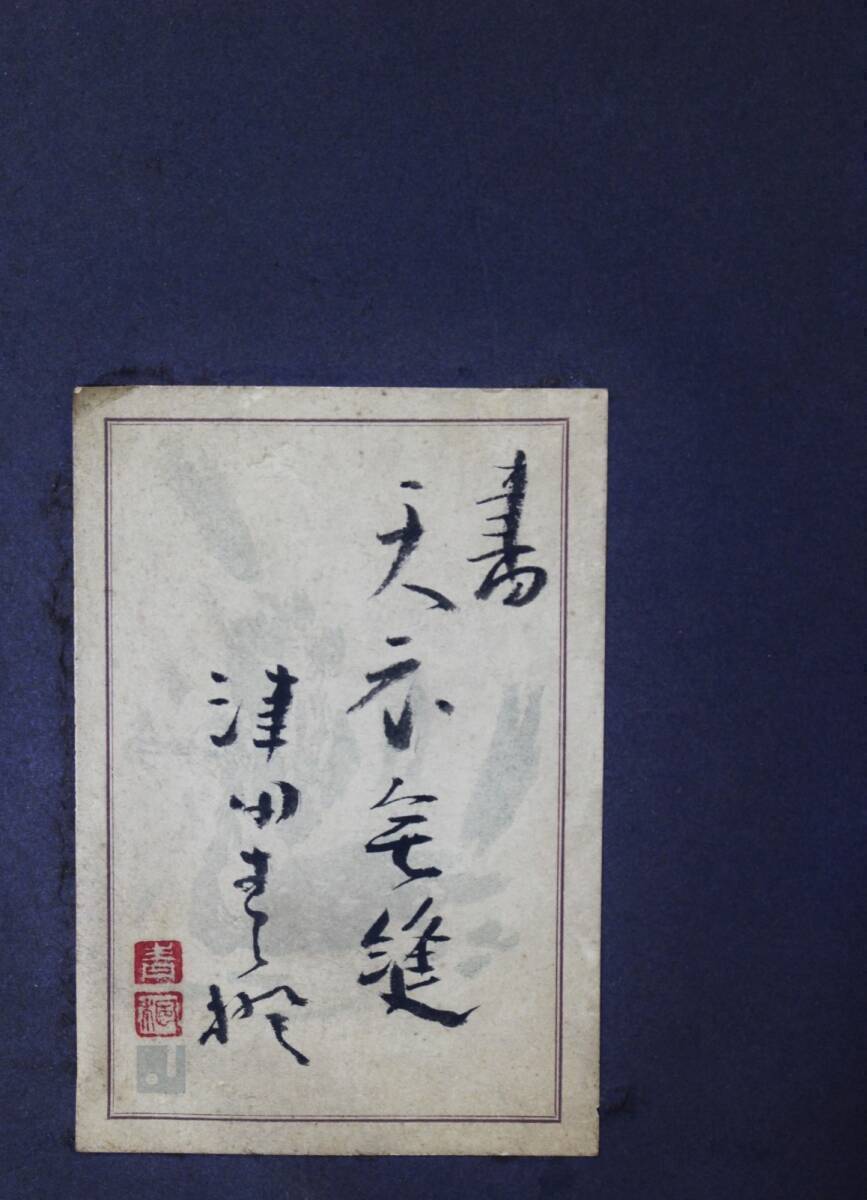 書
天衣無縫
津田青楓
青
楓